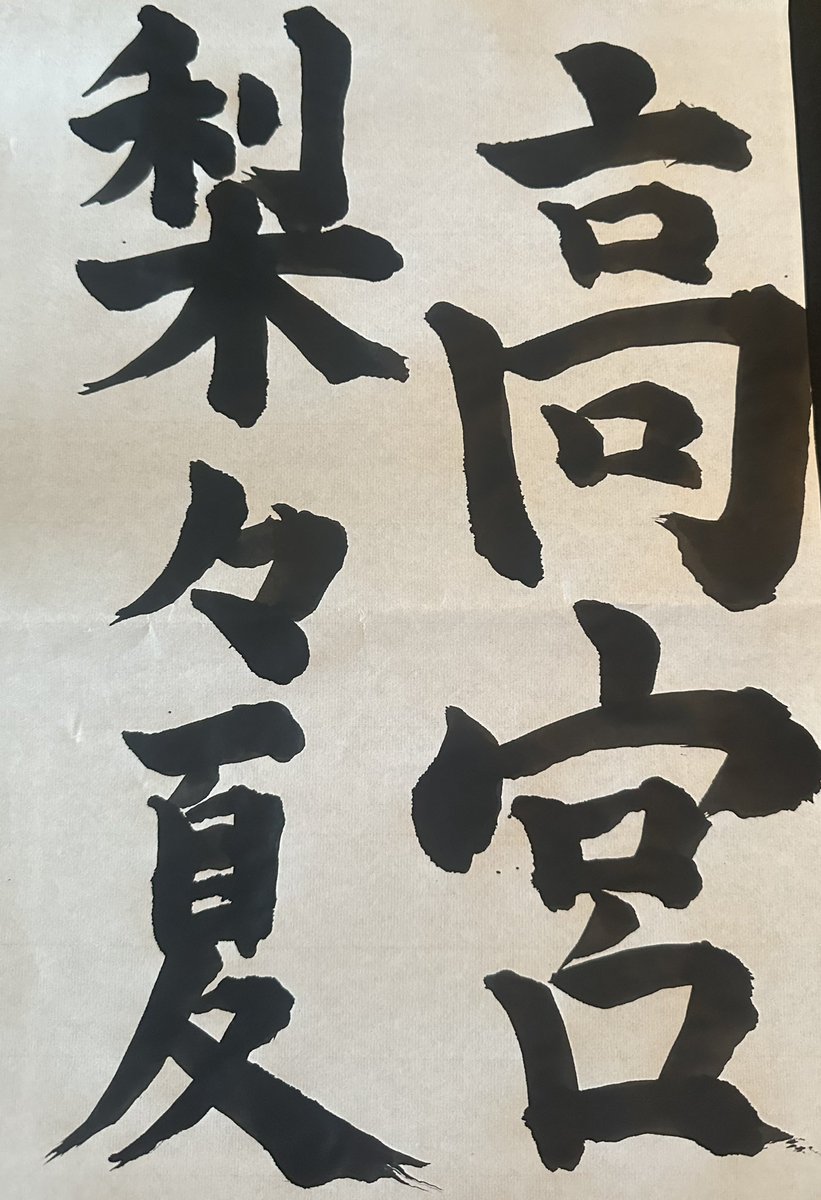 高宮
梨々夏